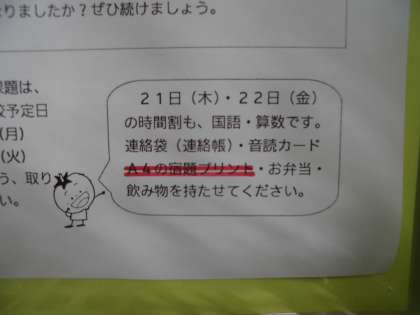 りましたか？ぜひ続けましょう。
題は、
予定日
（月）
（火）
う、取り
い。
２１日（木）・２２日（金）
の時間割も、国語・算数です。
連絡袋（連絡帳）・音読カード
Ａ４の宿題プリント・お弁当・
飲み物を持たせてください。